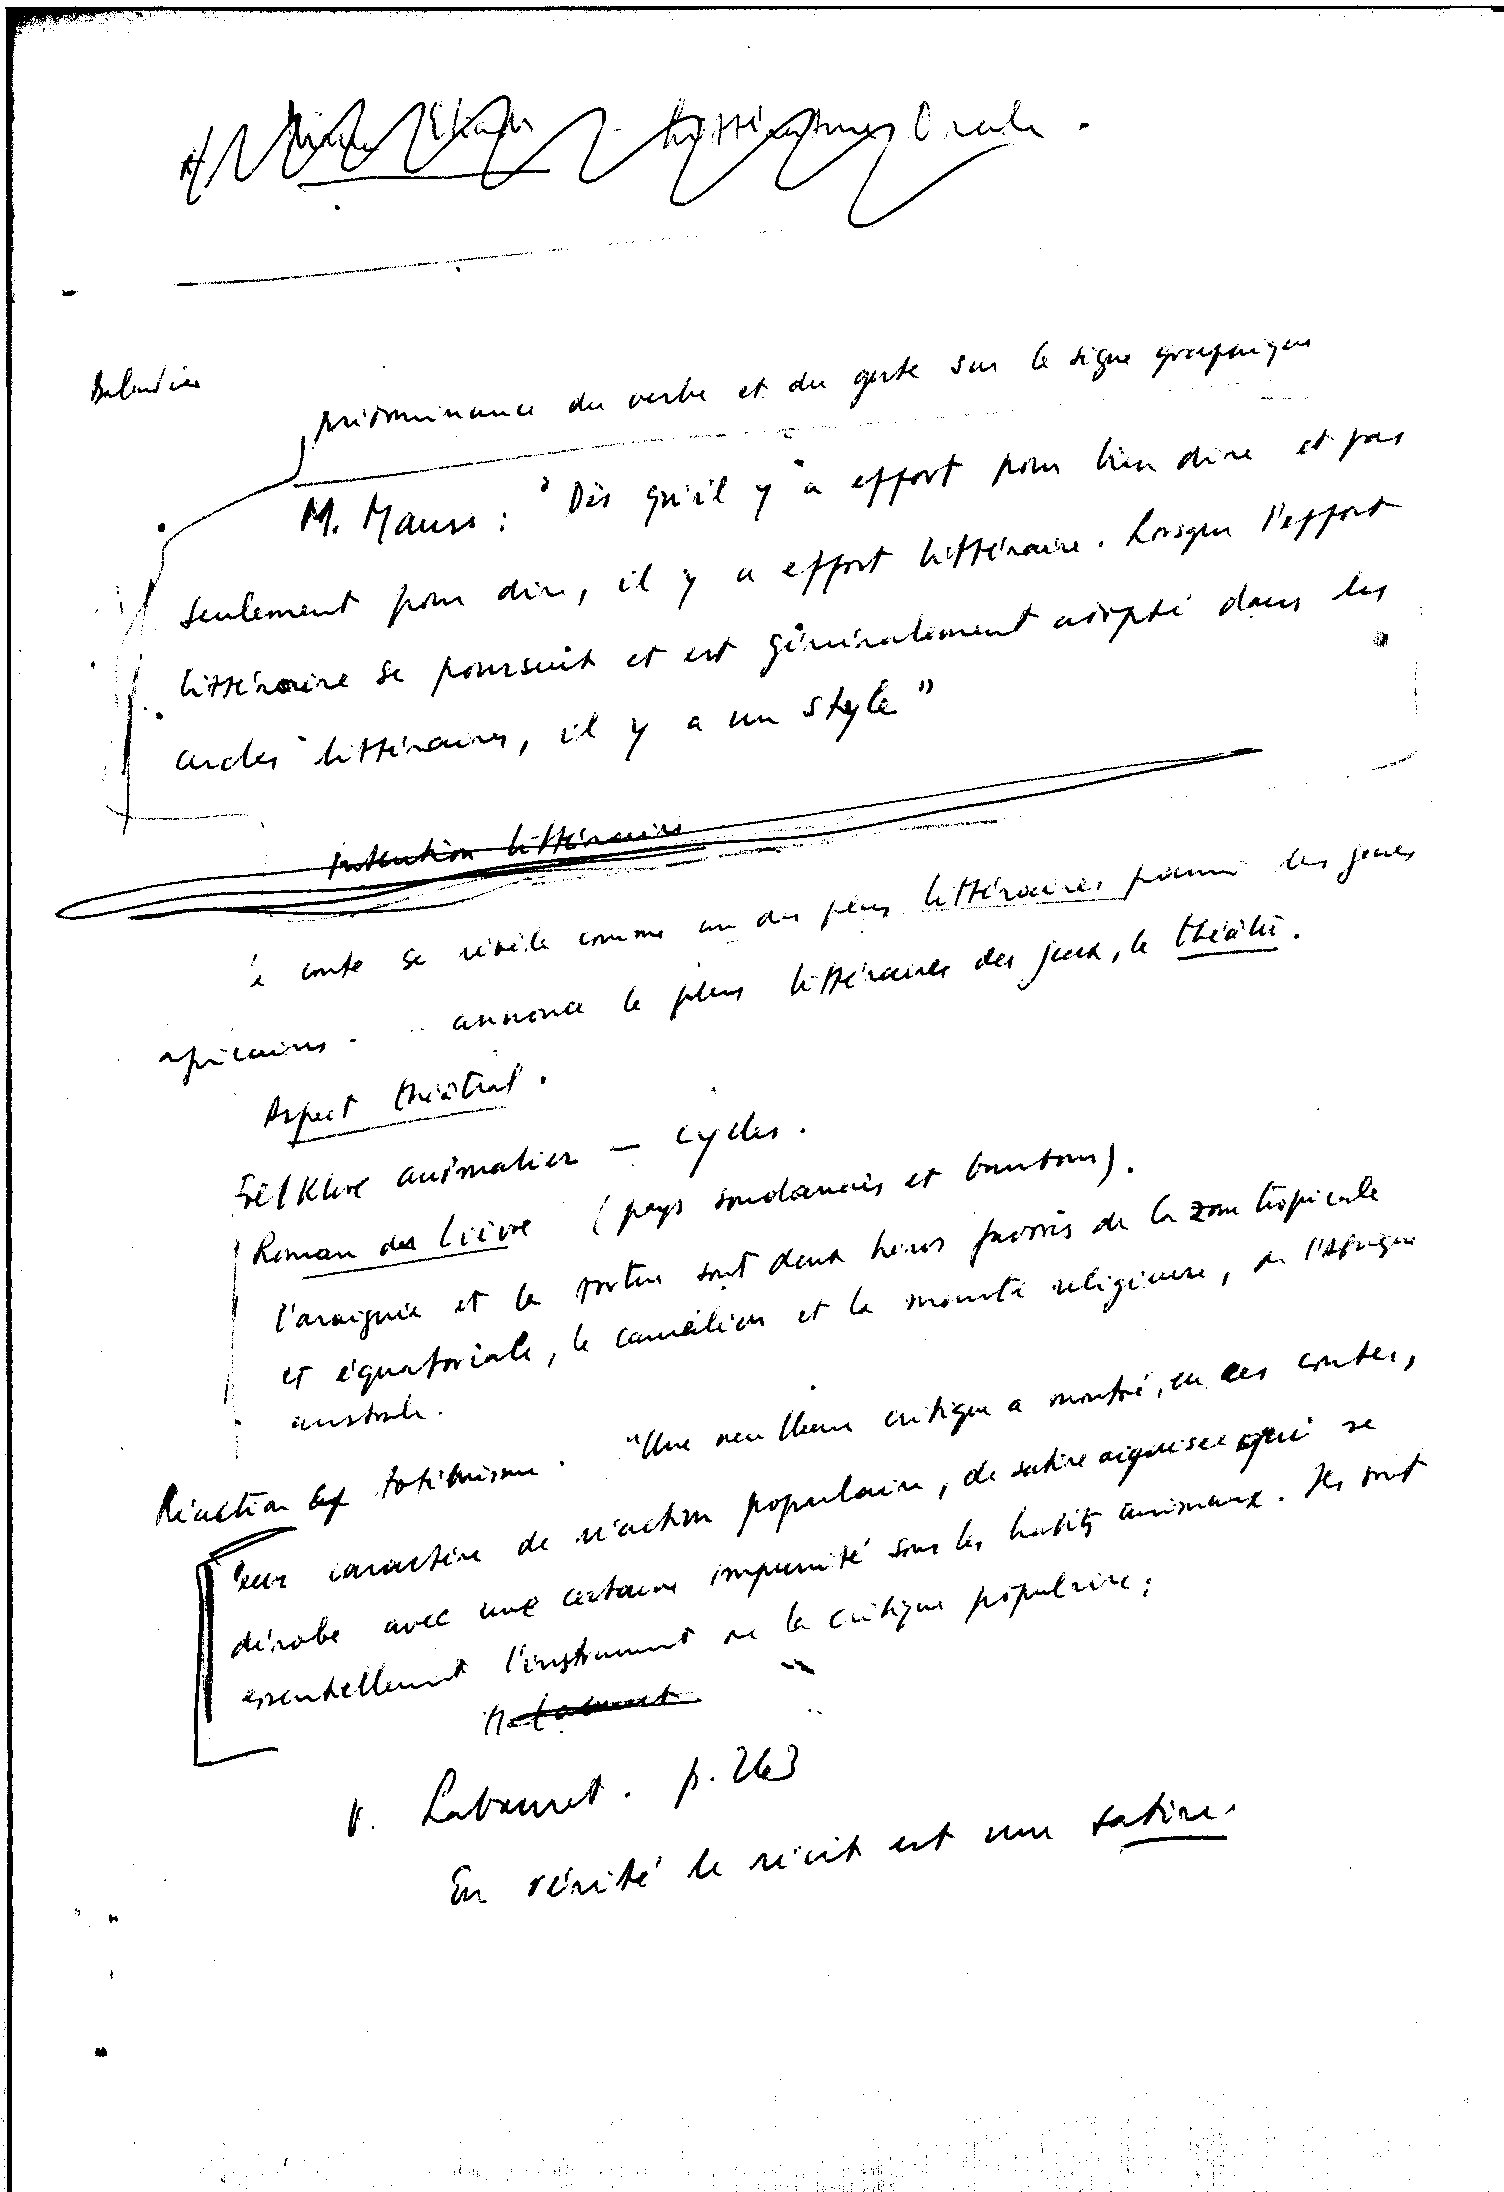 Littérature Orale.
Balandier
prédominance du verbe et du geste sur le signe graphique
M. Mauss : "Dès qu'il y a effort pour bien dire et pas
seulement pour dire, il y a effort littéraire. Lorsque l'effort
littéraire se poursuit et est généralement adopté dans les
cercles littéraires, il y a un style"
Intention littéraire
conte se révèle comme un des plus littéraires parmi les jeux
africains. annonce le plus littéraires des jeux, le théâtre.
Aspect théâtral.
Folklore animalier – cycles.
Roman du lièvre (pays soudanais et bantous).
l'araignée et la tortue sont deux héros favoris de la zone tropicale
et équatoriale, le caméléon et la mante religieuse, de l'Afrique
australe.
Réaction totémisme. "Une meilleure critique a montré, en ces contes,
leur caractère de réaction populaire, de satire aiguisée qui se
dérobe avec une certaine impunité sous les habits animaux. Ils sont
essentiellement l'instrument de la critique populaire ;
Labouret
v. Labouret. p. 263
En vérité le récit est une satire.